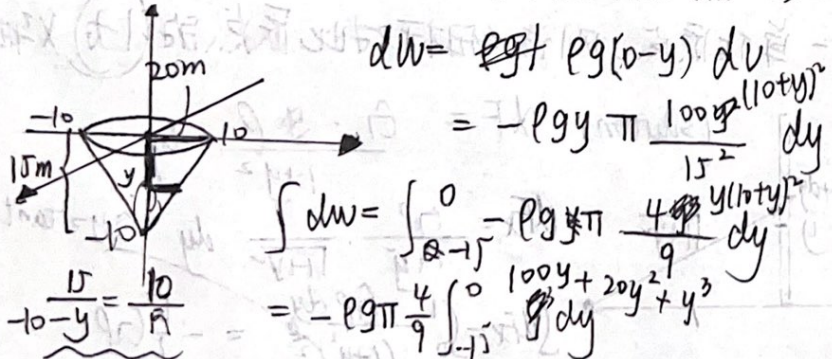 20m
-10
10
15m
y
-10
15/(-10-y) = 10/R
dw = ρg(0-y) dv
= -ρgy π 100(10+y)²/15² dy
∫dw = ∫₋₁₅⁰ -ρgπ 4y(10+y)²/9 dy
= -ρgπ 4/9 ∫₋₁₅⁰ 100y + 20y² + y³ dy